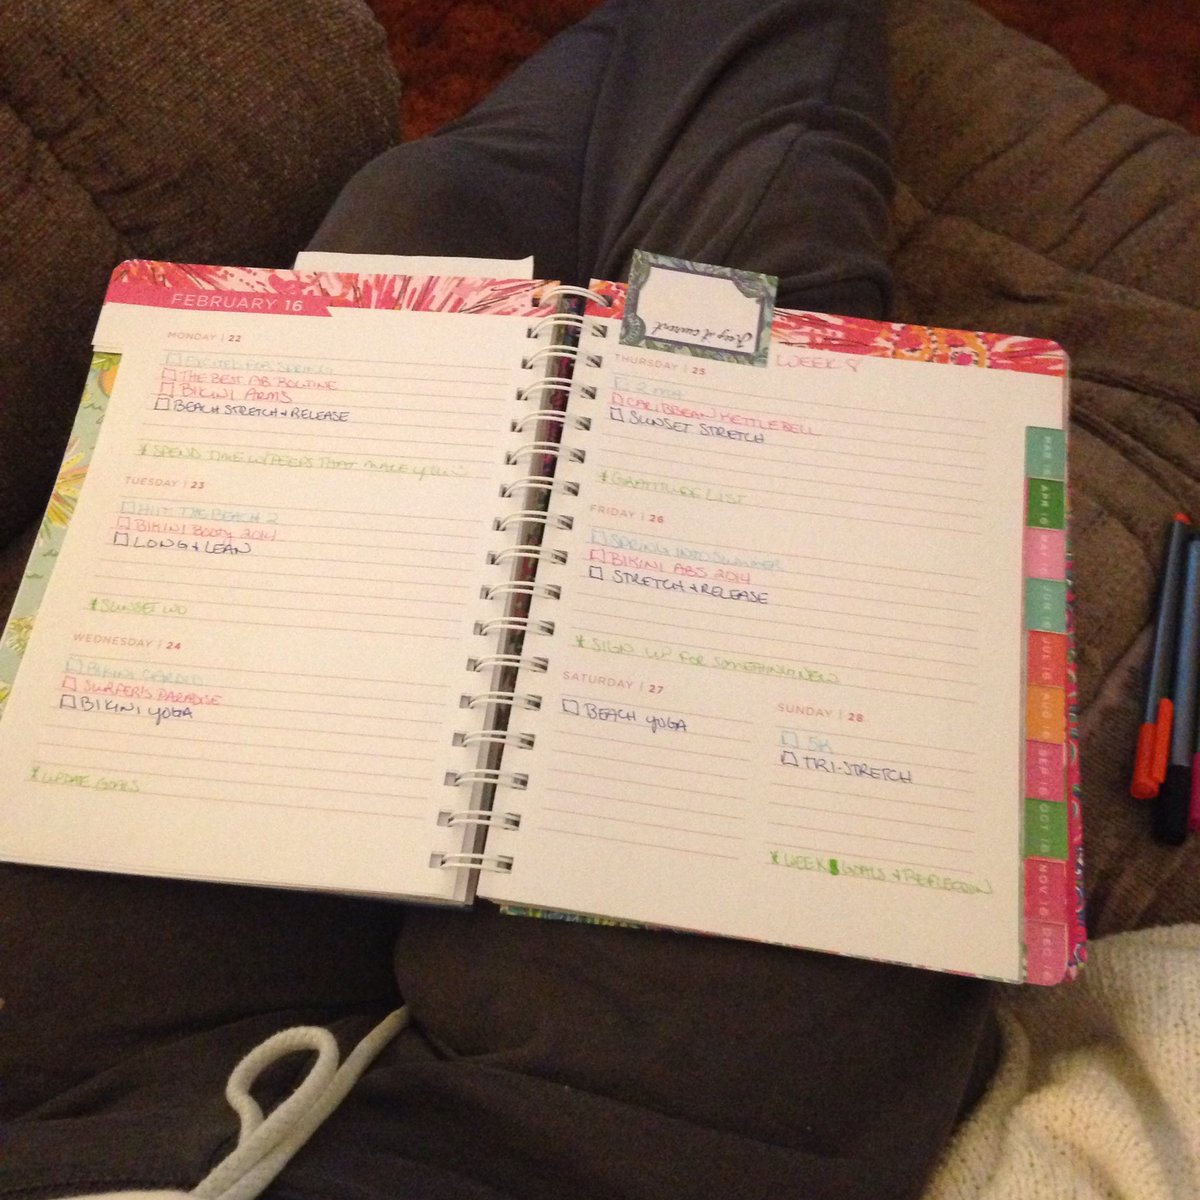 FEBRUARY 16
MONDAY | 22
THE BEST AB ROUTINE
BIKINI ARMS
BEACH STRETCH + RELEASE
* SPEND TIME W/ PEEPS THAT MAKE YOU
TUESDAY | 23
HIIT THE BEACH 2
BIKINI BOOTY 2014
LONG & LEAN
* SUNSET WO
WEDNESDAY | 24
BIKINI CARDIO
SURFER'S PARADISE
BIKINI YOGA
* UPDATE GOALS
Keep it current
WEEK 8
THURSDAY | 25
CARIBBEAN KETTLEBELL
SUNSET STRETCH
* GRATITUDE LIST
FRIDAY | 26
SPRING INTO SUMMER
BIKINI ABS 2014
STRETCH + RELEASE
* SIGN UP FOR SOMETHING NEW
SATURDAY | 27
BEACH YOGA
SUNDAY | 28
5K
TRI-STRETCH
* WEEK GOALS + REFLECTION
MAR 16
APR 16
MAY
JUN 16
JUL 16
AUG 16
SEP 16
OCT 16
NOV 16
DEC